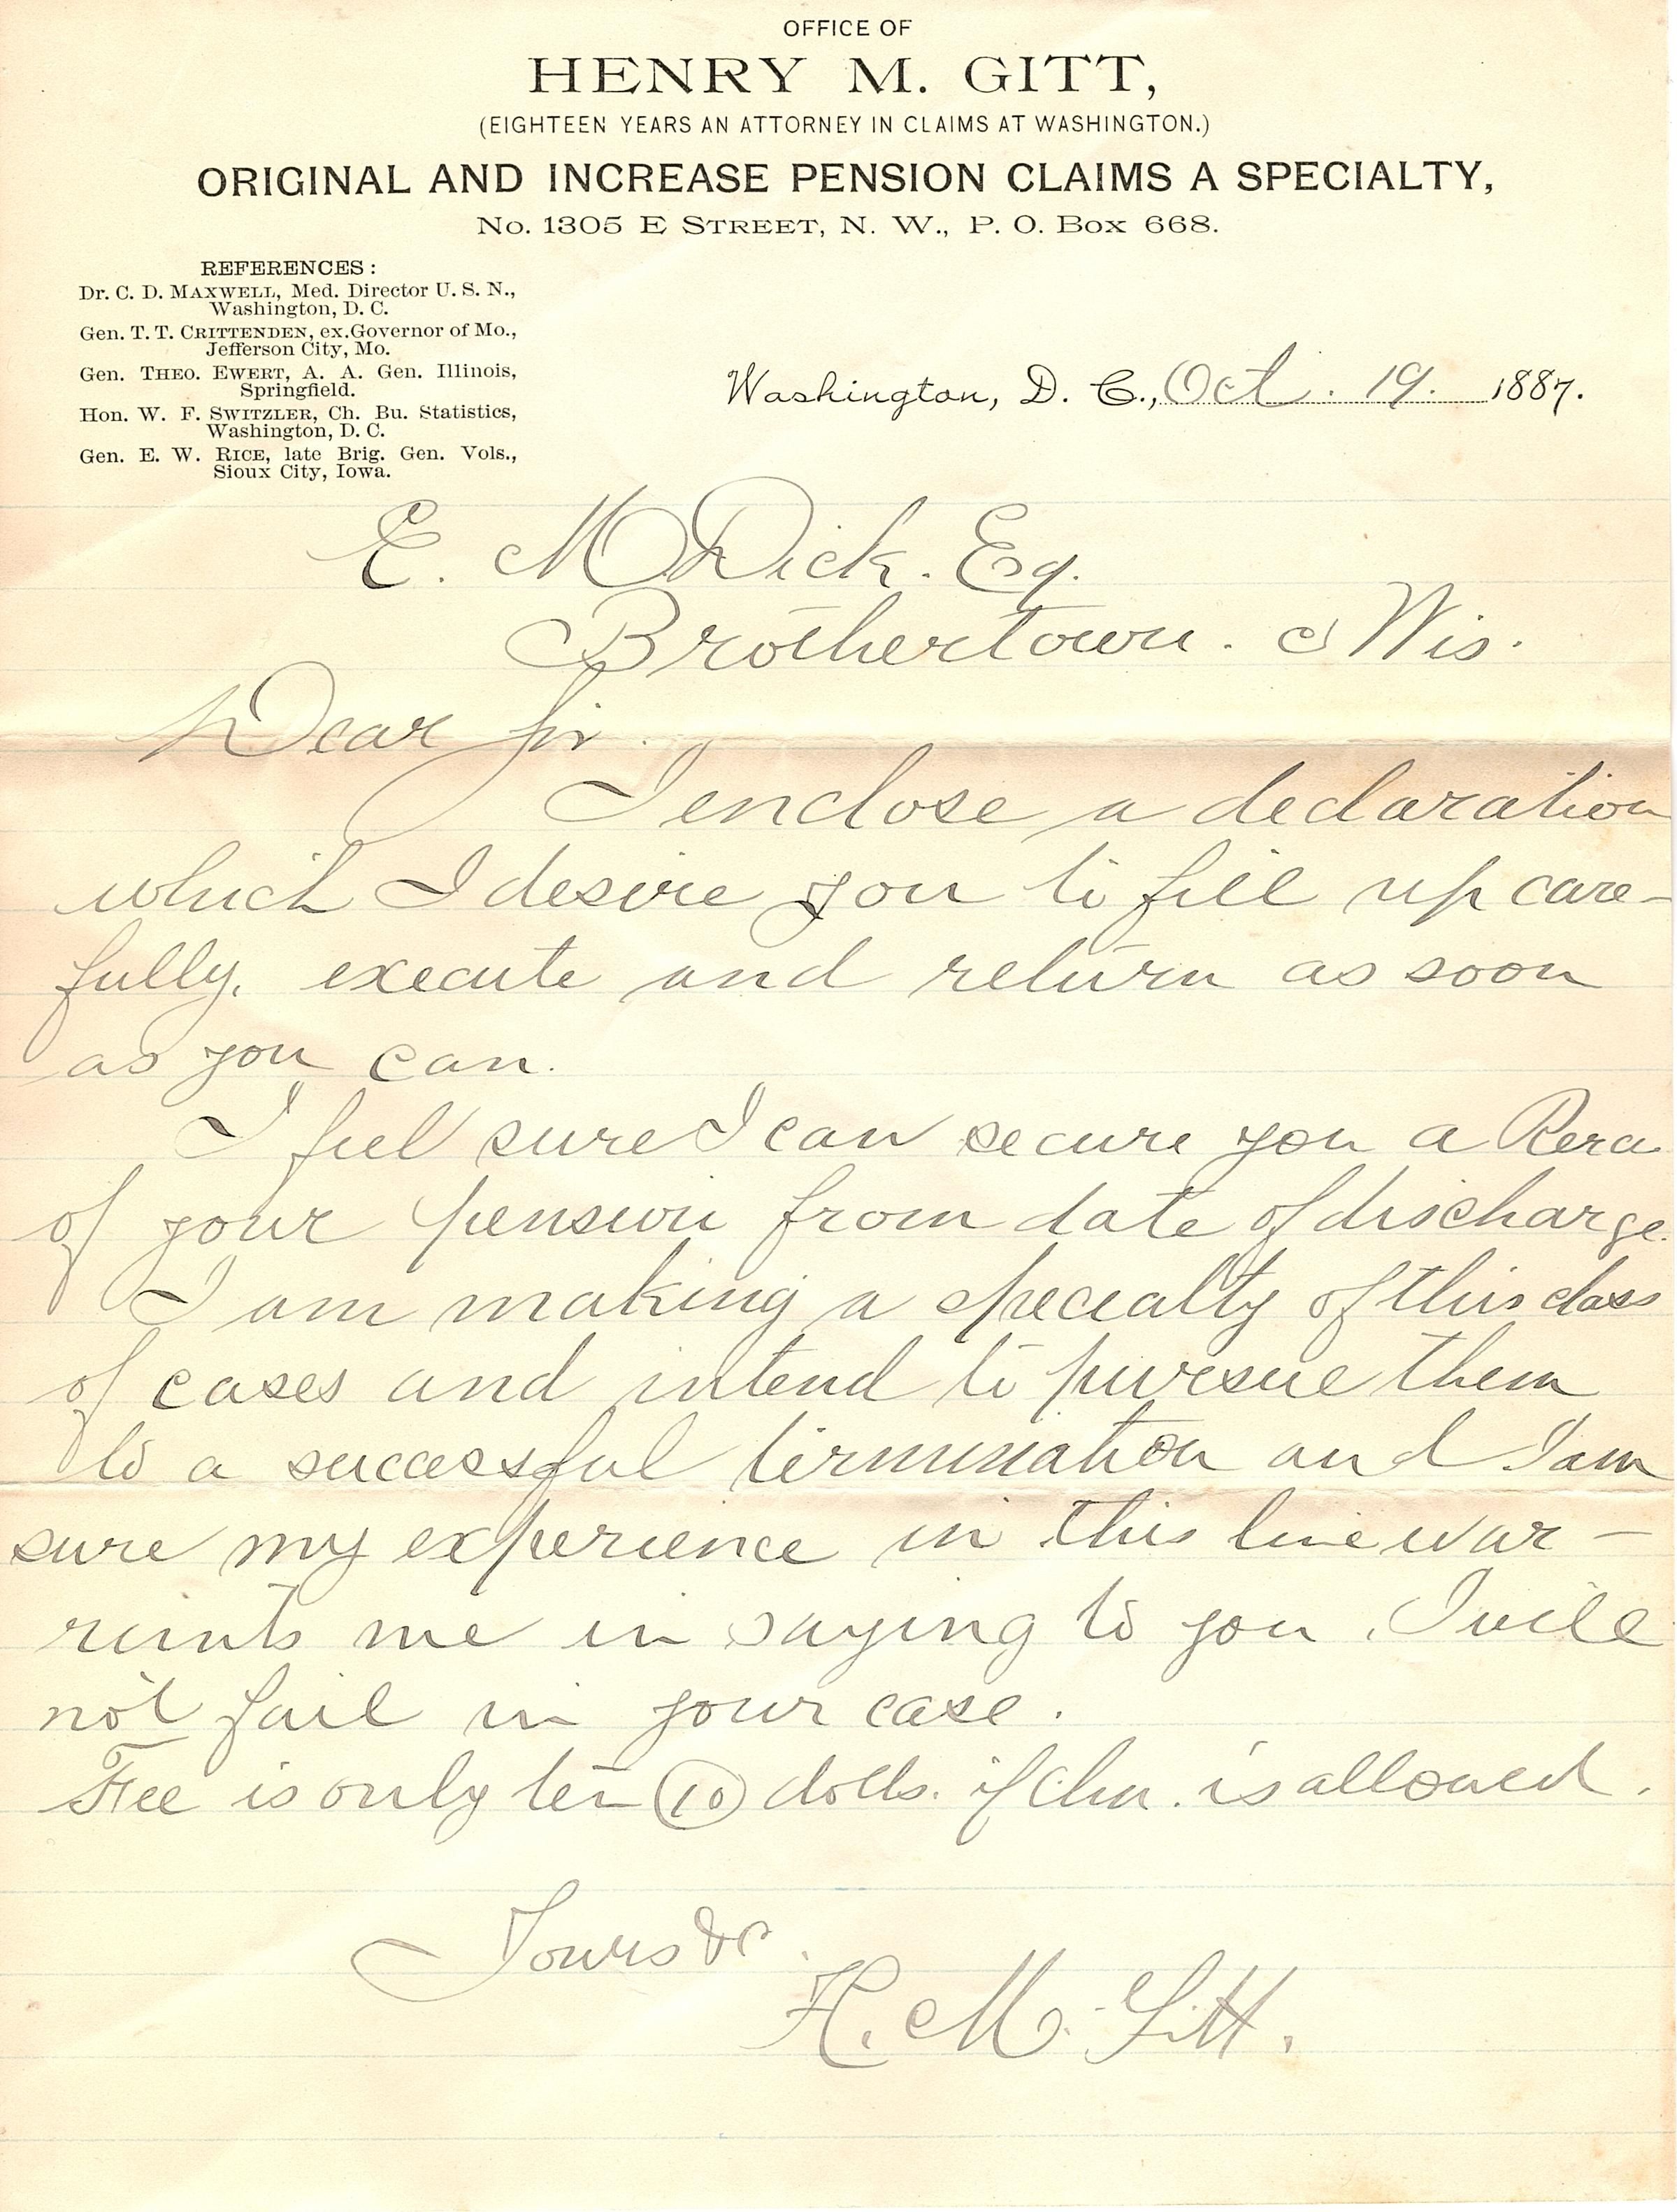 OFFICE OF
HENRY M. GITT,
(EIGHTEEN YEARS AN ATTORNEY IN CLAIMS AT WASHINGTON.)
ORIGINAL AND INCREASE PENSION CLAIMS A SPECIALTY,
No. 1305 E STREET, N. W., P. O. Box 668.
REFERENCES:
Dr. C. D. MAXWELL, Med. Director U. S. N.,
Washington, D. C.
Gen. T. T. CRITTENDEN, ex.Governor of Mo.,
Jefferson City, Mo.
Gen. THEO. EWERT, A. A. Gen. Illinois,
Springfield.
Hon. W. F. SWITZLER, Ch. Bu. Statistics,
Washington, D. C.
Gen. E. W. RICE, late Brig. Gen. Vols.,
Sioux City, Iowa.
Washington, D. C., Oct. 19. 1887.
E. M Dick. Esq.
Brothertown. Wis.
Dear Sir.
I enclose a declaration
which I desire you to fill up care-
fully, execute and return as soon
as you can.
I feel sure I can secure you a Rera
of your pension from date of discharge.
I am making a specialty of this class
of cases and intend to pursue them
to a successful termination and I am
sure my experience in this line war-
rants me in saying to you, I will
not fail in your case.
Fee is only ten (10) dolls. if clm. is allowed.
Yours &c.
H. M. Gitt.